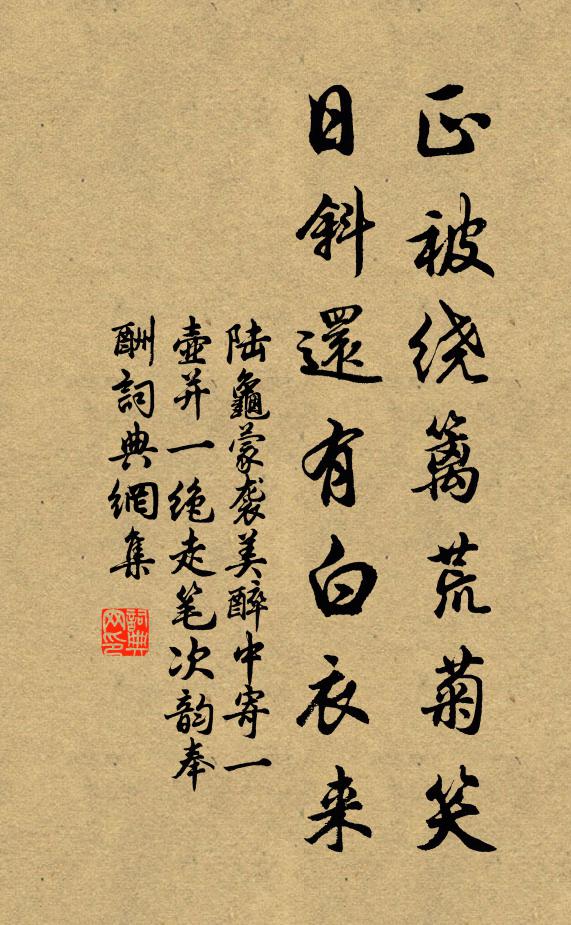 正被绕篱荒菊笑
日斜還有白衣来
陆龜蒙袭美醉中寄一
壺并一绝走笔次韵奉
酬詞典網集
詞典网印